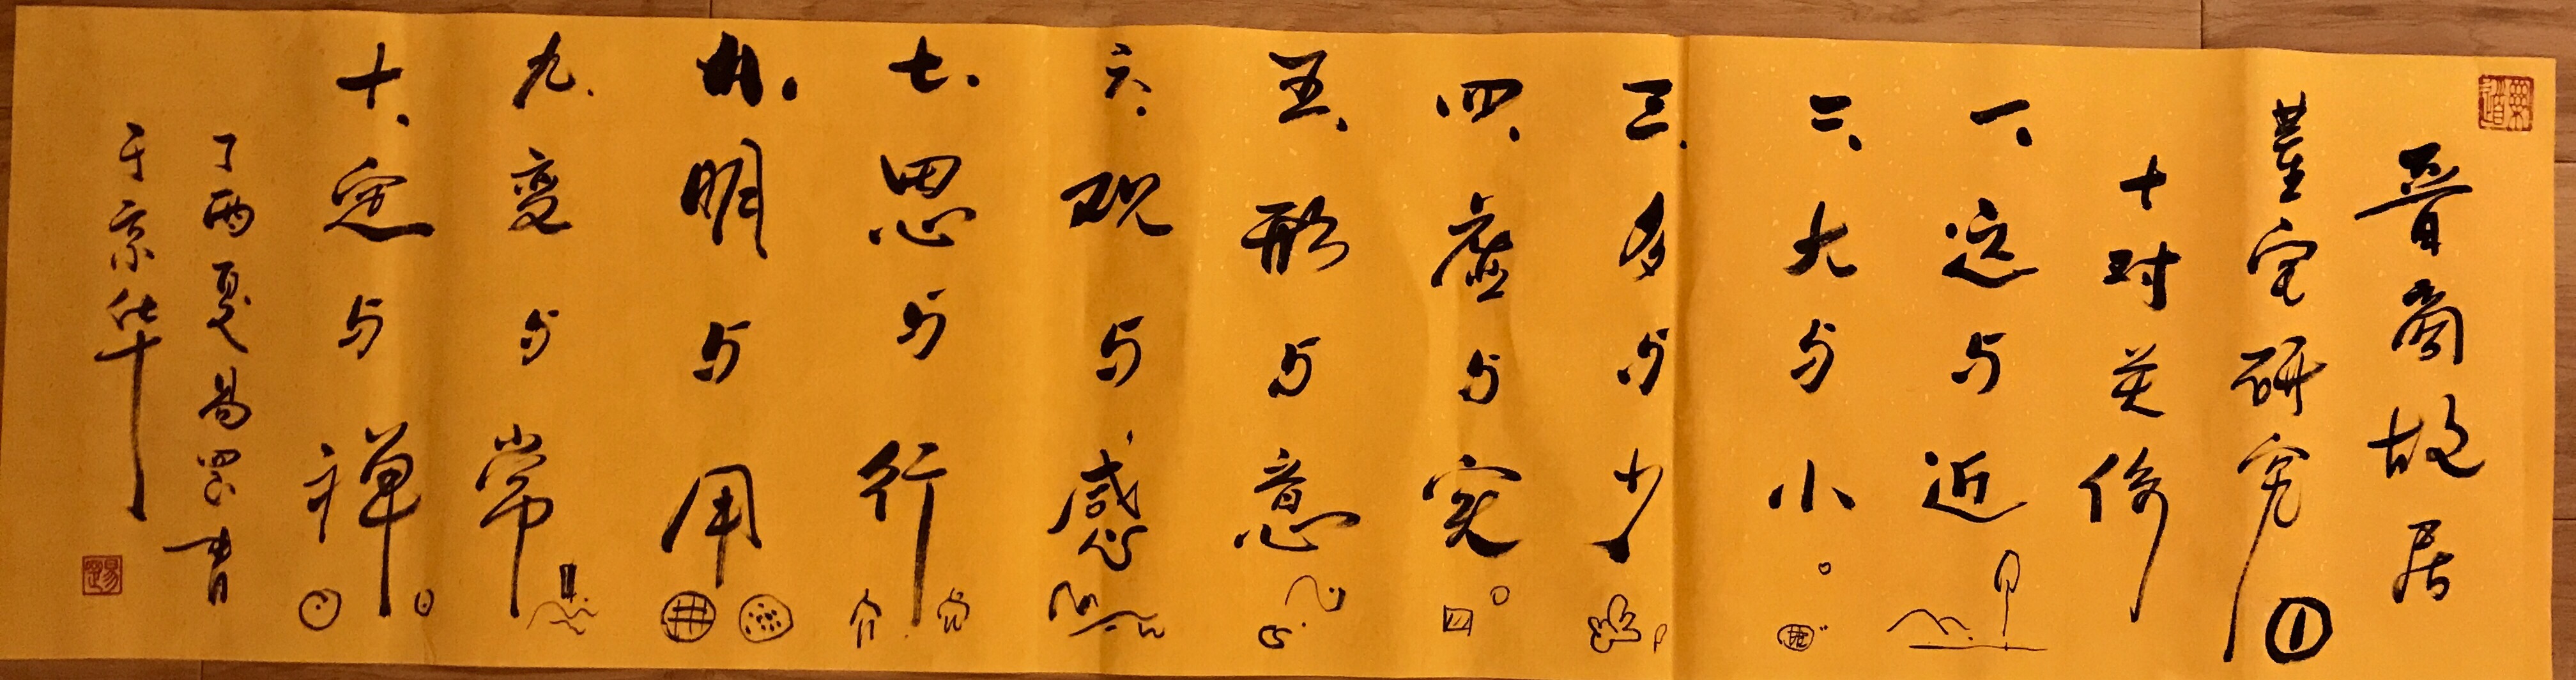 晋商故居
董宅研究①
十对关系
一、远与近
二、大与小
三、多与少
四、虚与实
五、形与意
六、观与感
七、思与行
八、明与用
九、变与常
十、定与禅
丁酉夏易思书
于京华